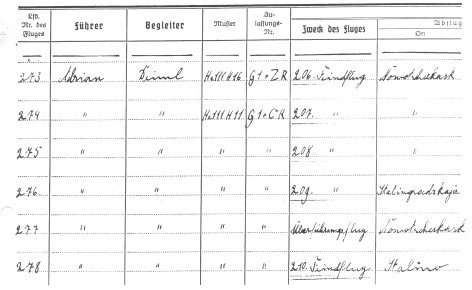 Lfd. Nr. des Fluges | Führer | Begleiter | Muster | Zu-lassungs-Nr. | Zweck des Fluges | Abflug Ort
273 | Adrian | Deiml | He111 H16 | G1+ZR | 206. Feindflug | Nowotscherkask
274 | " | " | He111 H11 | G1+CR | 207. " | "
275 | " | " | " | " | 208. " | "
276. | " | " | " | " | 209. " | Stalingradskaja
277 | " | " | " | " | Überführungsflug | Nowotscherkask
278 | " | " | " | " | 210. Feindflug | Stalino